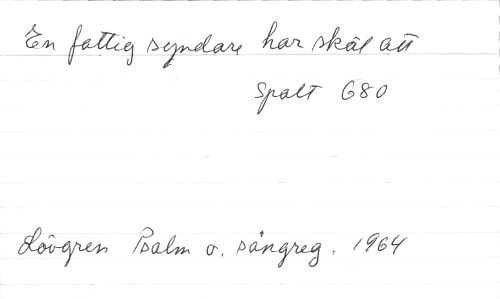 En fattig syndare har skäl att
Spalt 680
Lövgren Psalm o. sångreg. 1964